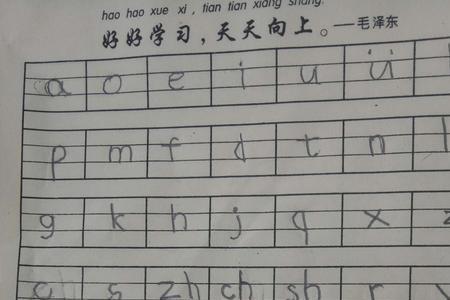 hao hao xue xi , tian tian xiang shang.
好好学习，天天向上。——毛泽东
a o e i u ü
p m f d t n l
g k h j q x z
c s zh ch sh r